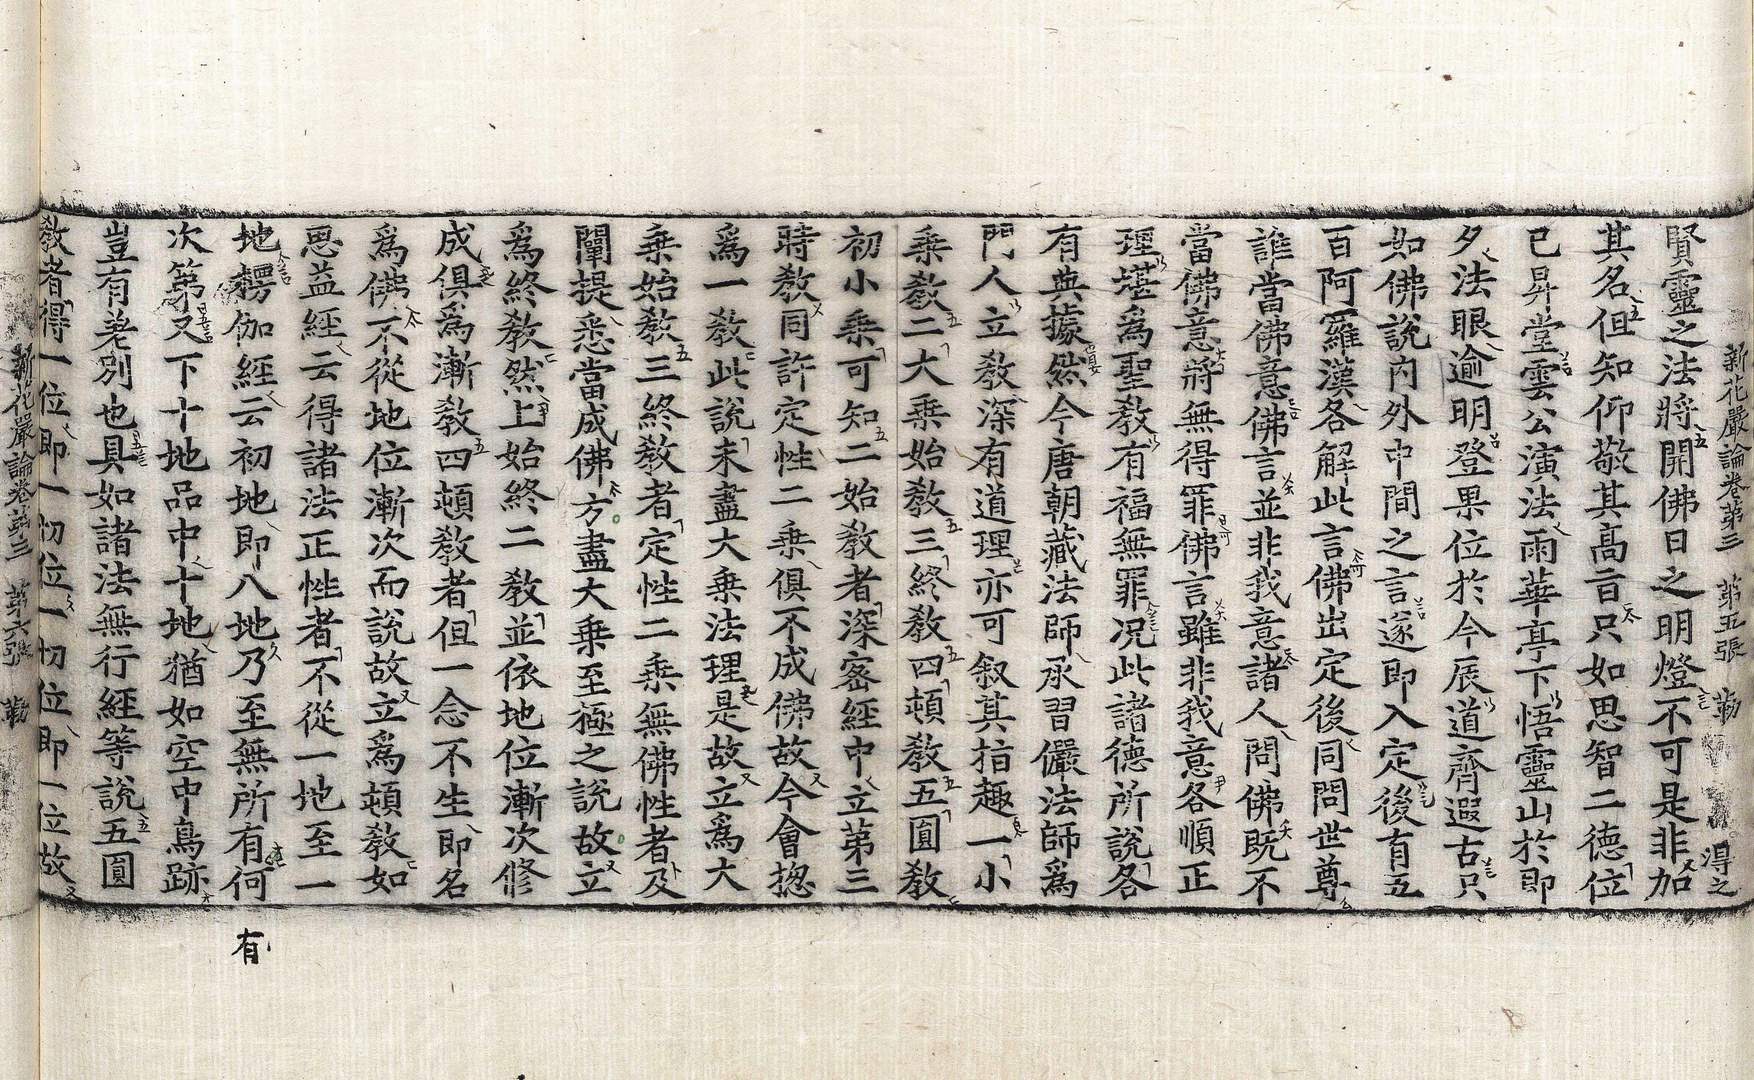 新花嚴論卷第三　第五張　勒　得之
賢靈之法將開佛日之明燈不可是非加
其名但知仰敬其高旨只如思智二德位
已昇堂雲公演法雨華亭下悟靈山於即
夕法眼逾明登果位於今辰道齊遐古只
如佛說內外中間之言遂即入定後有五
百阿羅漢各解此言佛出定後同問世尊
誰當佛意佛言並非我意諸人問佛旣不
當佛意將無得罪佛言雖非我意各順正
理堪爲聖敎有福無罪况此諸德所說各
有典據然今唐朝藏法師承習儼法師爲
門人立敎深有道理亦可叙其指趣一小
乘敎二大乘始敎三終敎四頓敎五圓敎
初小乘可知二始敎者深密經中立第三
時敎同許定性二乘俱不成佛故今會捴
爲一敎此說未盡大乘法理是故立爲大
乘始敎三終敎者定性二乘無佛性者及
闡提悉當成佛方盡大乘至極之說故立
爲終敎然上始終二敎並依地位漸次修
成俱爲漸敎四頓敎者但一念不生即名
爲佛不從地位漸次而說故立爲頓敎如
思益經云得諸法正性者不從一地至一
地楞伽經云初地即八地乃至無所有何
次第又下十地品中十地猶如空中鳥跡
豈有差別也具如諸法無行經等說五圓
敎者得一位即一切位一切位即一位故
新花嚴論卷第三　第六張　勒
有